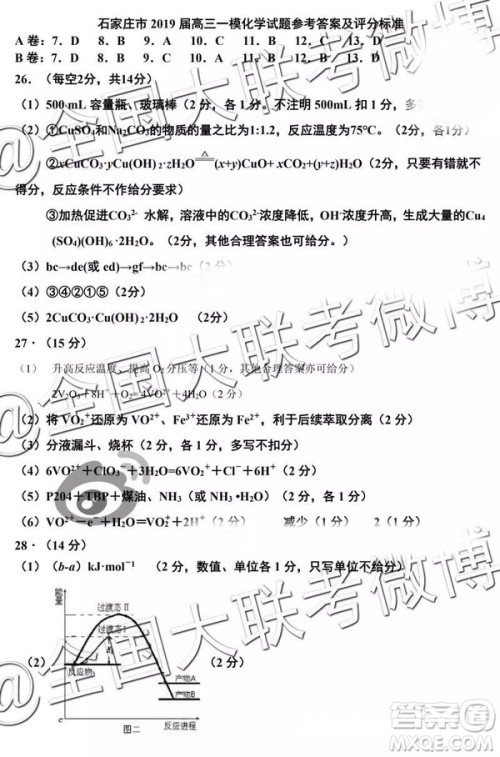 石家庄市 2019 届高三一模化学试题参考答案及评分标准
A 卷：7．D 8．B 9．A 10．C 11．B 12．B 13．D
B 卷：7．D 8．B 9．A 10．C 11．B 12．B 13．D
26．（每空2分，共14分）
（1）500 mL 容量瓶、玻璃棒（2 分，各 1 分。不注明 500mL 扣 1 分，
（2）①CuSO4和Na2CO3的物质的量之比为1:1.2，反应温度为75℃。（2分，各1分）
②xCuCO3·yCu(OH)2·zH2O(x+y)CuO+ xCO2+(y+z)H2O（2分，只要有错就不
得分，反应条件不作给分要求）
③加热促进CO3 2- 水解，溶液中的CO3 2-浓度降低，OH-浓度升高，生成大量的Cu4
(SO4)(OH)6·2H2O。（2分，其他合理答案也可给分）
（3）bc→de(或 ed)→gf→bc→bc（2 分）
（4）③④②①⑤（2分）
（5）2CuCO3·Cu(OH)2·2H2O （2分）
27·（15 分）
（1） 升高反应温度、提高 O2分压等（1 分，其他合理答案亦可给分）
2V2O3+8H++O2=4VO2++4H2O （2 分）
（2）将 VO2+还原为 VO2+、Fe3+还原为 Fe2+，利于后续萃取分离（2 分）
（3）分液漏斗、烧杯（2 分，各 1 分，多写不扣分）
（4）6VO2++ClO3-+3H2O=6VO2++Cl-+6H+（2 分）
（5）P204＋TBP＋煤油、NH3（或 NH3·H2O）（2 分，各 1 分）
（6）VO2+-e-+H2O=VO2++2H+（2 分） 减少（1 分） 2（1 分）
28·（14 分）
（1）(b-a) kJ·mol-1 （2 分，数值、单位各 1 分，只写单位不给分）
能量
过渡态 II
过渡态 I
（2） （2 分）
反应物
产物A
产物B
图二 反应进程
@全国大联考微博
@全国大联考微博
@全国大联考微博
答案圈
MXQE.COM